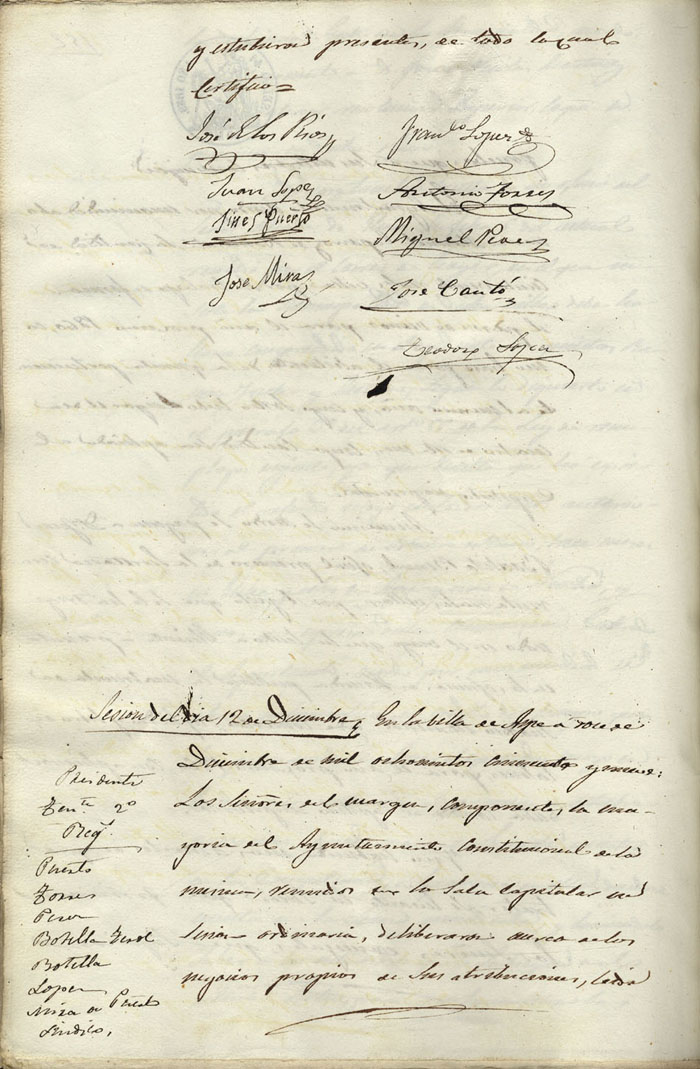 y estubieron presentes, de todo lo qual
Certifico =
José de los Rios
Franco Lopez
Juan Lopez
Antonio Torres
Gines Puerto
Miguel Perez
Jose Mira
Jose Cantó
Teodoro Lopez
Sesion del dia 12 de Diciembre
En la villa de Aspe a doce de
Diciembre de mil ochocientos cincuenta y nueve:
Los Señores del margen, componentes, la ma-
yoria del Ayuntamiento Constitucional de la
misma, reunidos en la Sala Capitular en
sesion ordinaria, deliberaron acerca de los
negocios propios de sus atribuciones, leida
Presidente
Tente 2º
Puerto
Torres
Perez
Botella
Botella
Lopez
Mira de Puerto
Sindico,